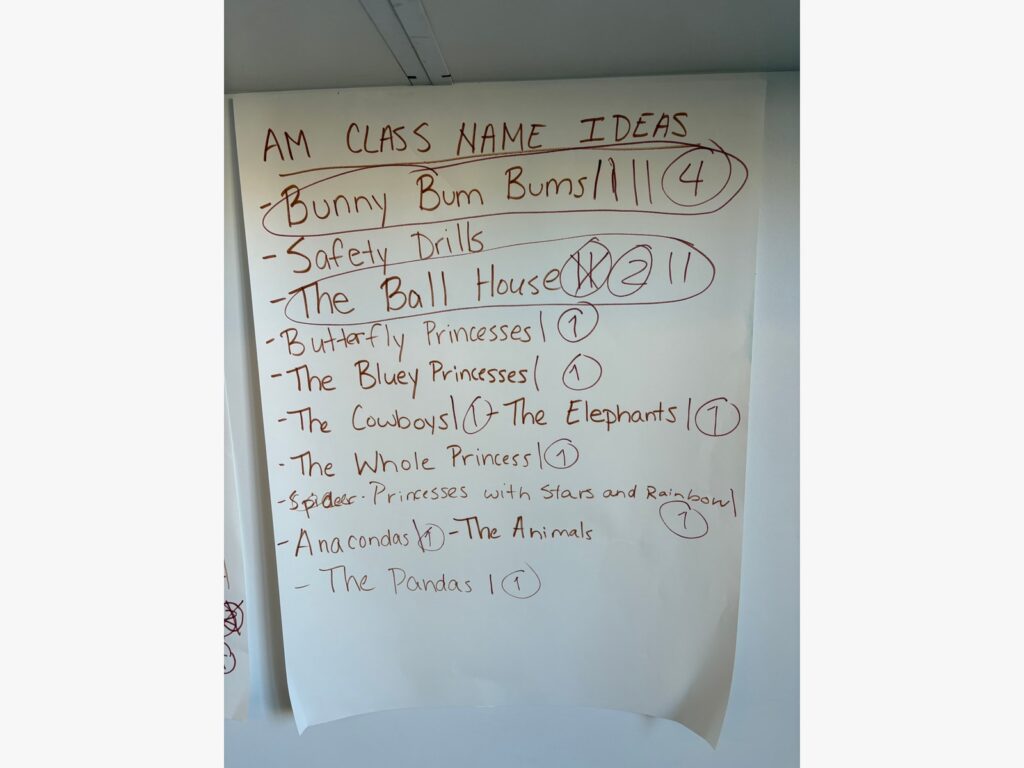 AM CLASS NAME IDEAS
- Bunny Bum Bums |||| 4
- Safety Drills
- The Ball House || 2 ||
- Butterfly Princesses | 1
- The Bluey Princesses | 1
- The Cowboys | 1 - The Elephants | 1
- The Whole Princess | 1
- Spider Princesses with Stars and Rainbow | 1
- Anacondas | 1 - The Animals
- The Pandas | 1